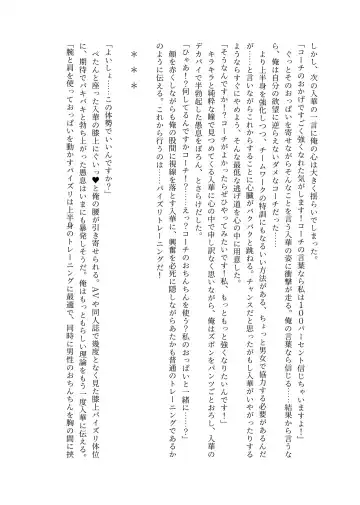 しかし、次の入華の一言に俺の心は大きく揺らいでしまった。
「コーチのおかげですごく強くなれた気がします！コーチの言葉なら私は１００パーセント信じちゃいますよ！」
ぐっとそのおっぱいを寄せながらそんなことを言う入華の姿に衝撃が走る。俺の言葉なら信じる……結果から言うなら、俺は自分の欲望に逆らえないダメなコーチだった……
「より上半身を強化しつつ、チームワークの特訓にもなるいい方法がある。ちょっと男女で協力する必要があるんだが……」と言いながらこれからすることに心臓がバクバクと跳ねる。チャンスだと思ったがもし入華がいやがったりするようならすぐにやめよう。そんな最低な逃げ道を心の中で用意した。
「そうなんですか！？コーチがよかったらぜひやってみたいです！私、もっともっと強くなりたいんです！」
キラキラと純粋な瞳で見つめてくる入華に心の中で申し訳なく思いながら、俺はズボンをパンツごとおろし、入華のデカパイで半勃起した愚息をぼろん、とさらけだした。
「ひゃあ！？何してるんですかコーチ！？……えっ？コーチのおちんちんを使う？私のおっぱいと一緒に……？」
顔を赤くしながらも俺の股間に視線を落とす入華に、興奮を必死に隠しながらあたかも普通のトレーニングであるかのように伝える。これから行うのは……パイズリトレーニングだ！
＊　＊　＊
「よいしょ……この体勢でいいんですか？」
ぺたんと座った入華の膝上にぐいっ♥と俺の腰が引き寄せられる。ＡＶや同人誌で幾度となく見た膝上パイズリ体位に、期待でバキバキと勃ち上がった愚息はいまにも暴発しそうだ。俺はもっともらしい理論をもう一度入華に伝える。
「腕と肩を使っておっぱいを動かすパイズリは上半身のトレーニングに最適で、同時に男性のおちんちんを胸の間に挟